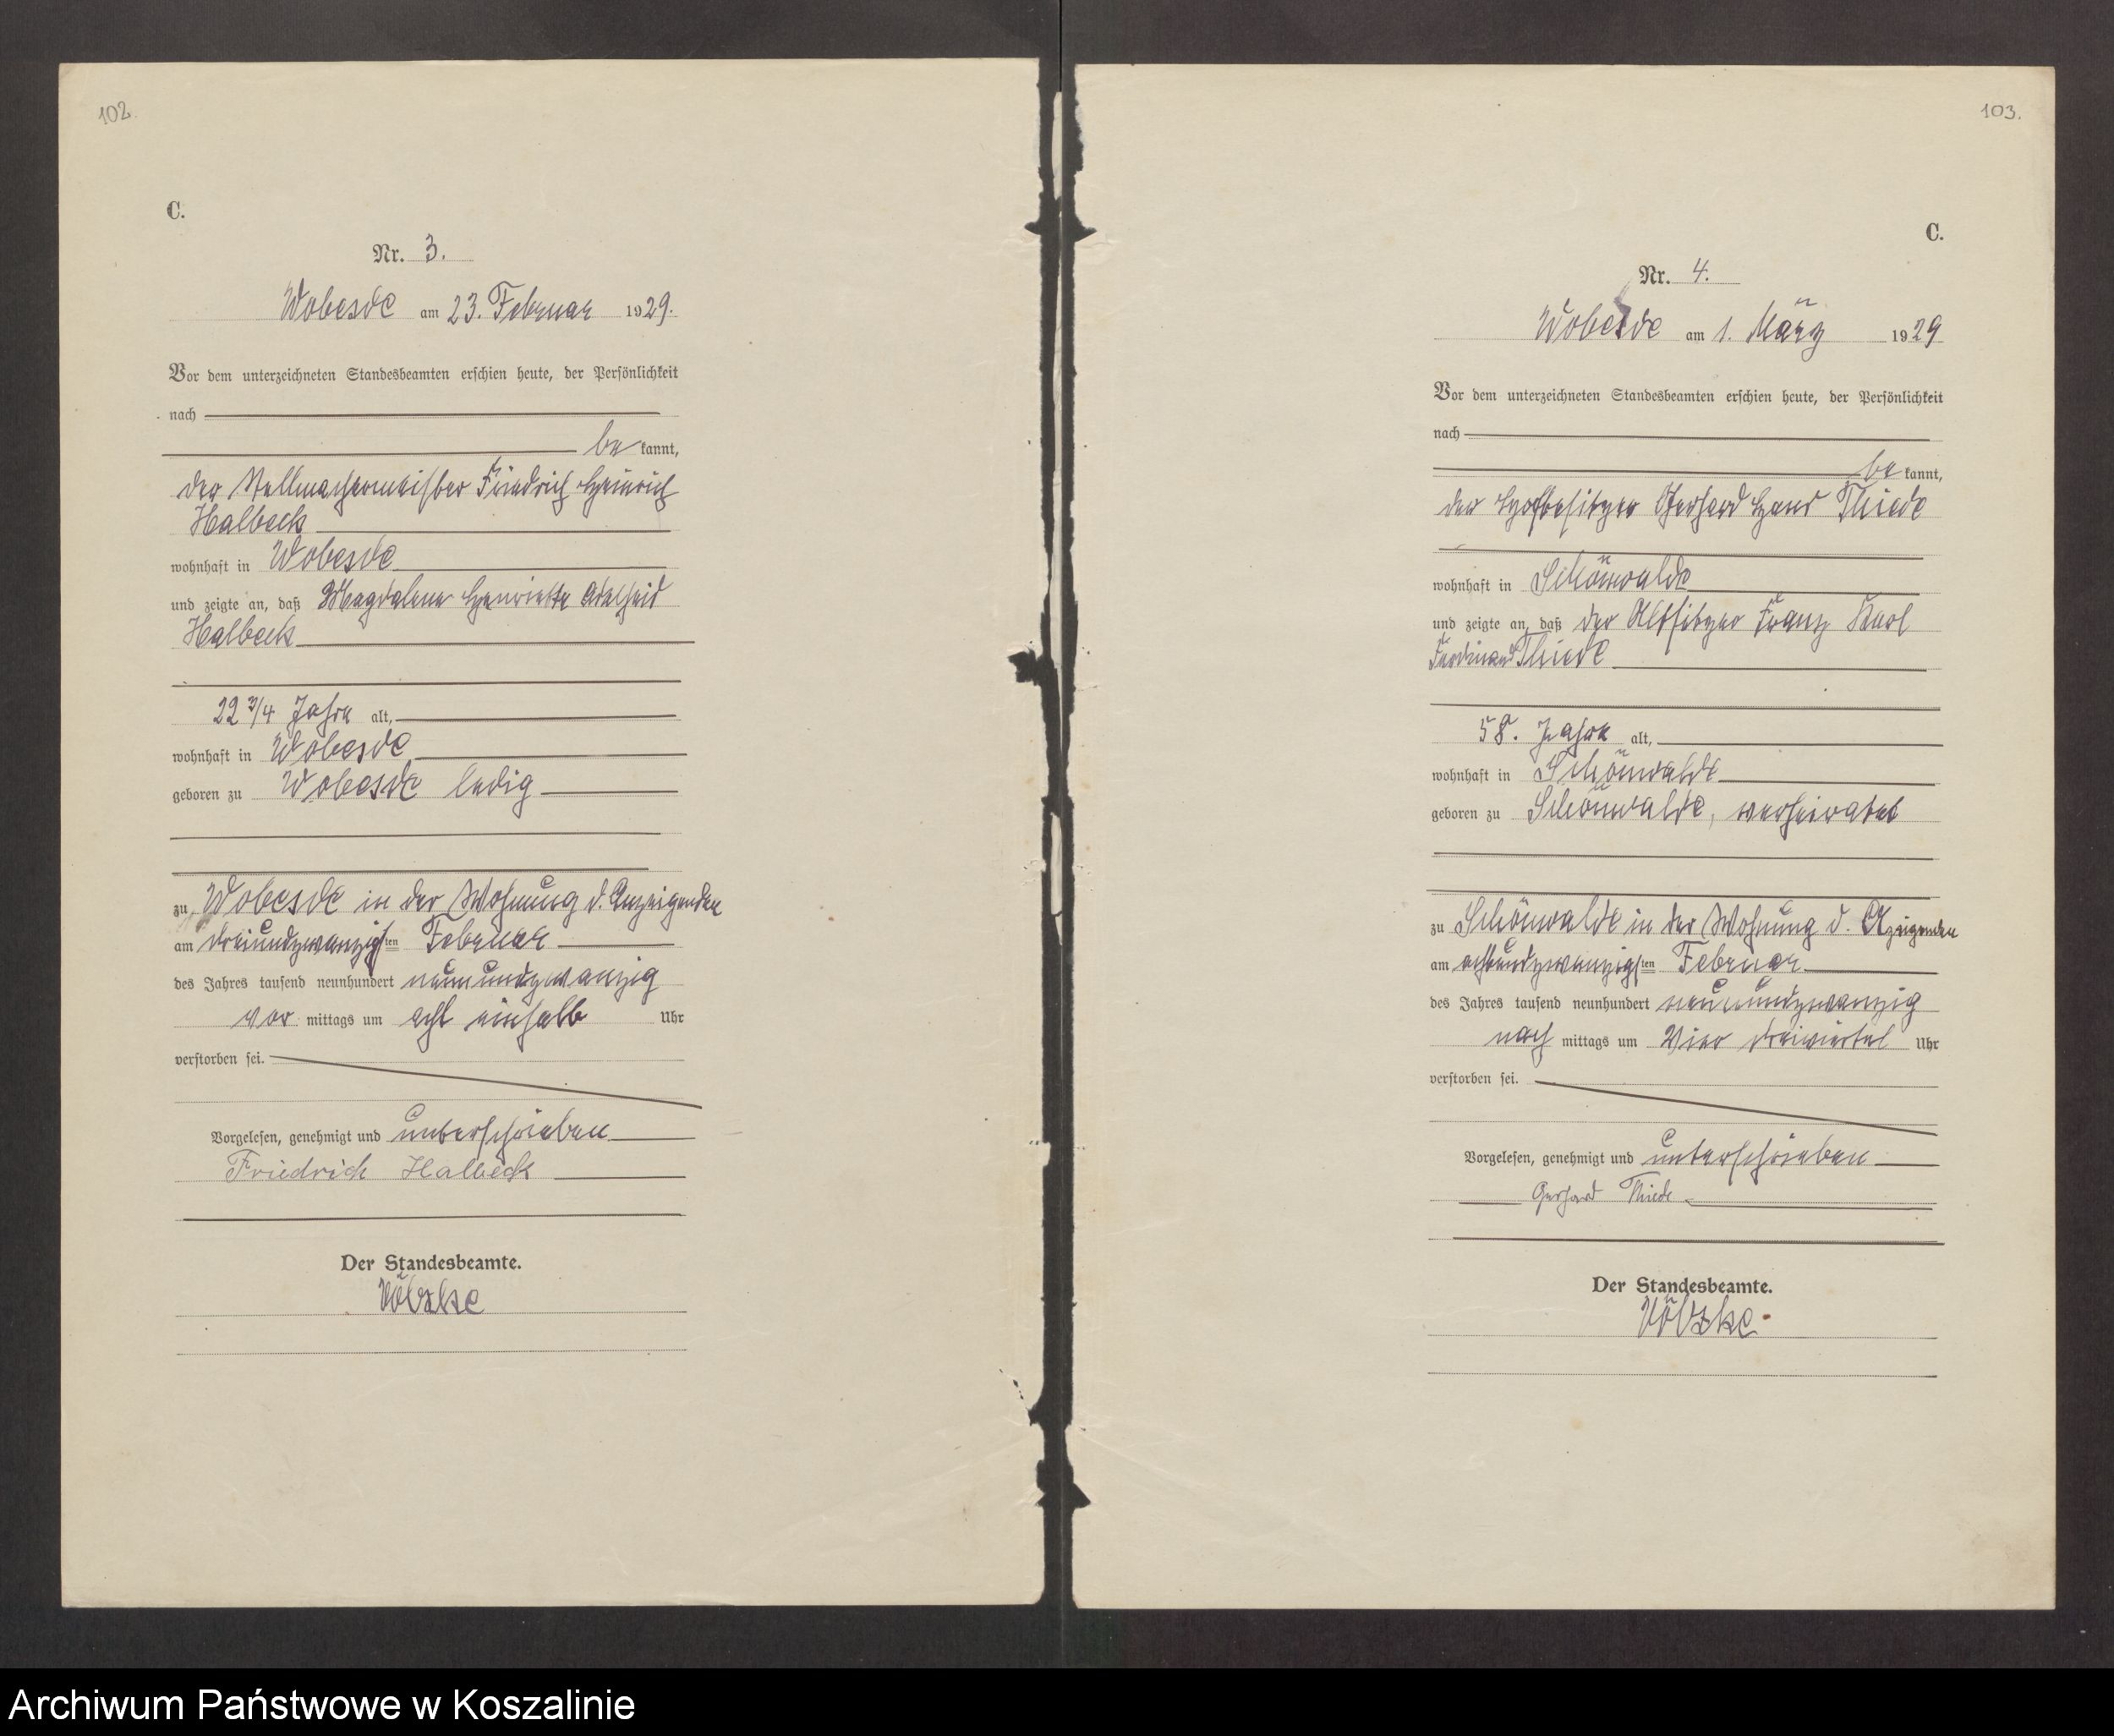 102.
C.
Nr. 3.
Wobesde am 23. Februar 1929.
Vor dem unterzeichneten Standesbeamten erschien heute, der Persönlichkeit
nach
be kannt,
der Stellmachermeister Friedrich Heinrich
Halbeck
wohnhaft in Wobesde
und zeigte an, daß Magdalena Henriette Adelheid
Halbeck
22 3/4 Jahre alt,
wohnhaft in Wobesde
geboren zu Wobesde ledig
zu Wobesde in der Wohnung d. Anzeigenden
am dreiundzwanzigsten Februar
des Jahres tausend neunhundert neunundzwanzig
vor mittags um acht einhalb Uhr
verstorben sei.
Vorgelesen, genehmigt und unterschrieben
Friedrich Halbeck
Der Standesbeamte.
Völzke
103.
C.
Nr. 4.
Wobesde am 1. März 1929
Vor dem unterzeichneten Standesbeamten erschien heute, der Persönlichkeit
nach
be kannt,
der Hofbesitzer Gerhard Hans Thiede
wohnhaft in Schönwalde
und zeigte an, daß der Altsitzer Franz Karl
Ferdinand Thiede
58. Jahre alt,
wohnhaft in Schönwalde
geboren zu Schönwalde, verheiratet
zu Schönwalde in der Wohnung d. Azeigenden
am achtundzwanzigsten Februar
des Jahres tausend neunhundert neunundzwanzig
nach mittags um Vier dreiviertel Uhr
verstorben sei.
Vorgelesen, genehmigt und unterschrieben
Gerhard Thiede
Der Standesbeamte.
Völzke.
Archiwum Państwowe w Koszalinie